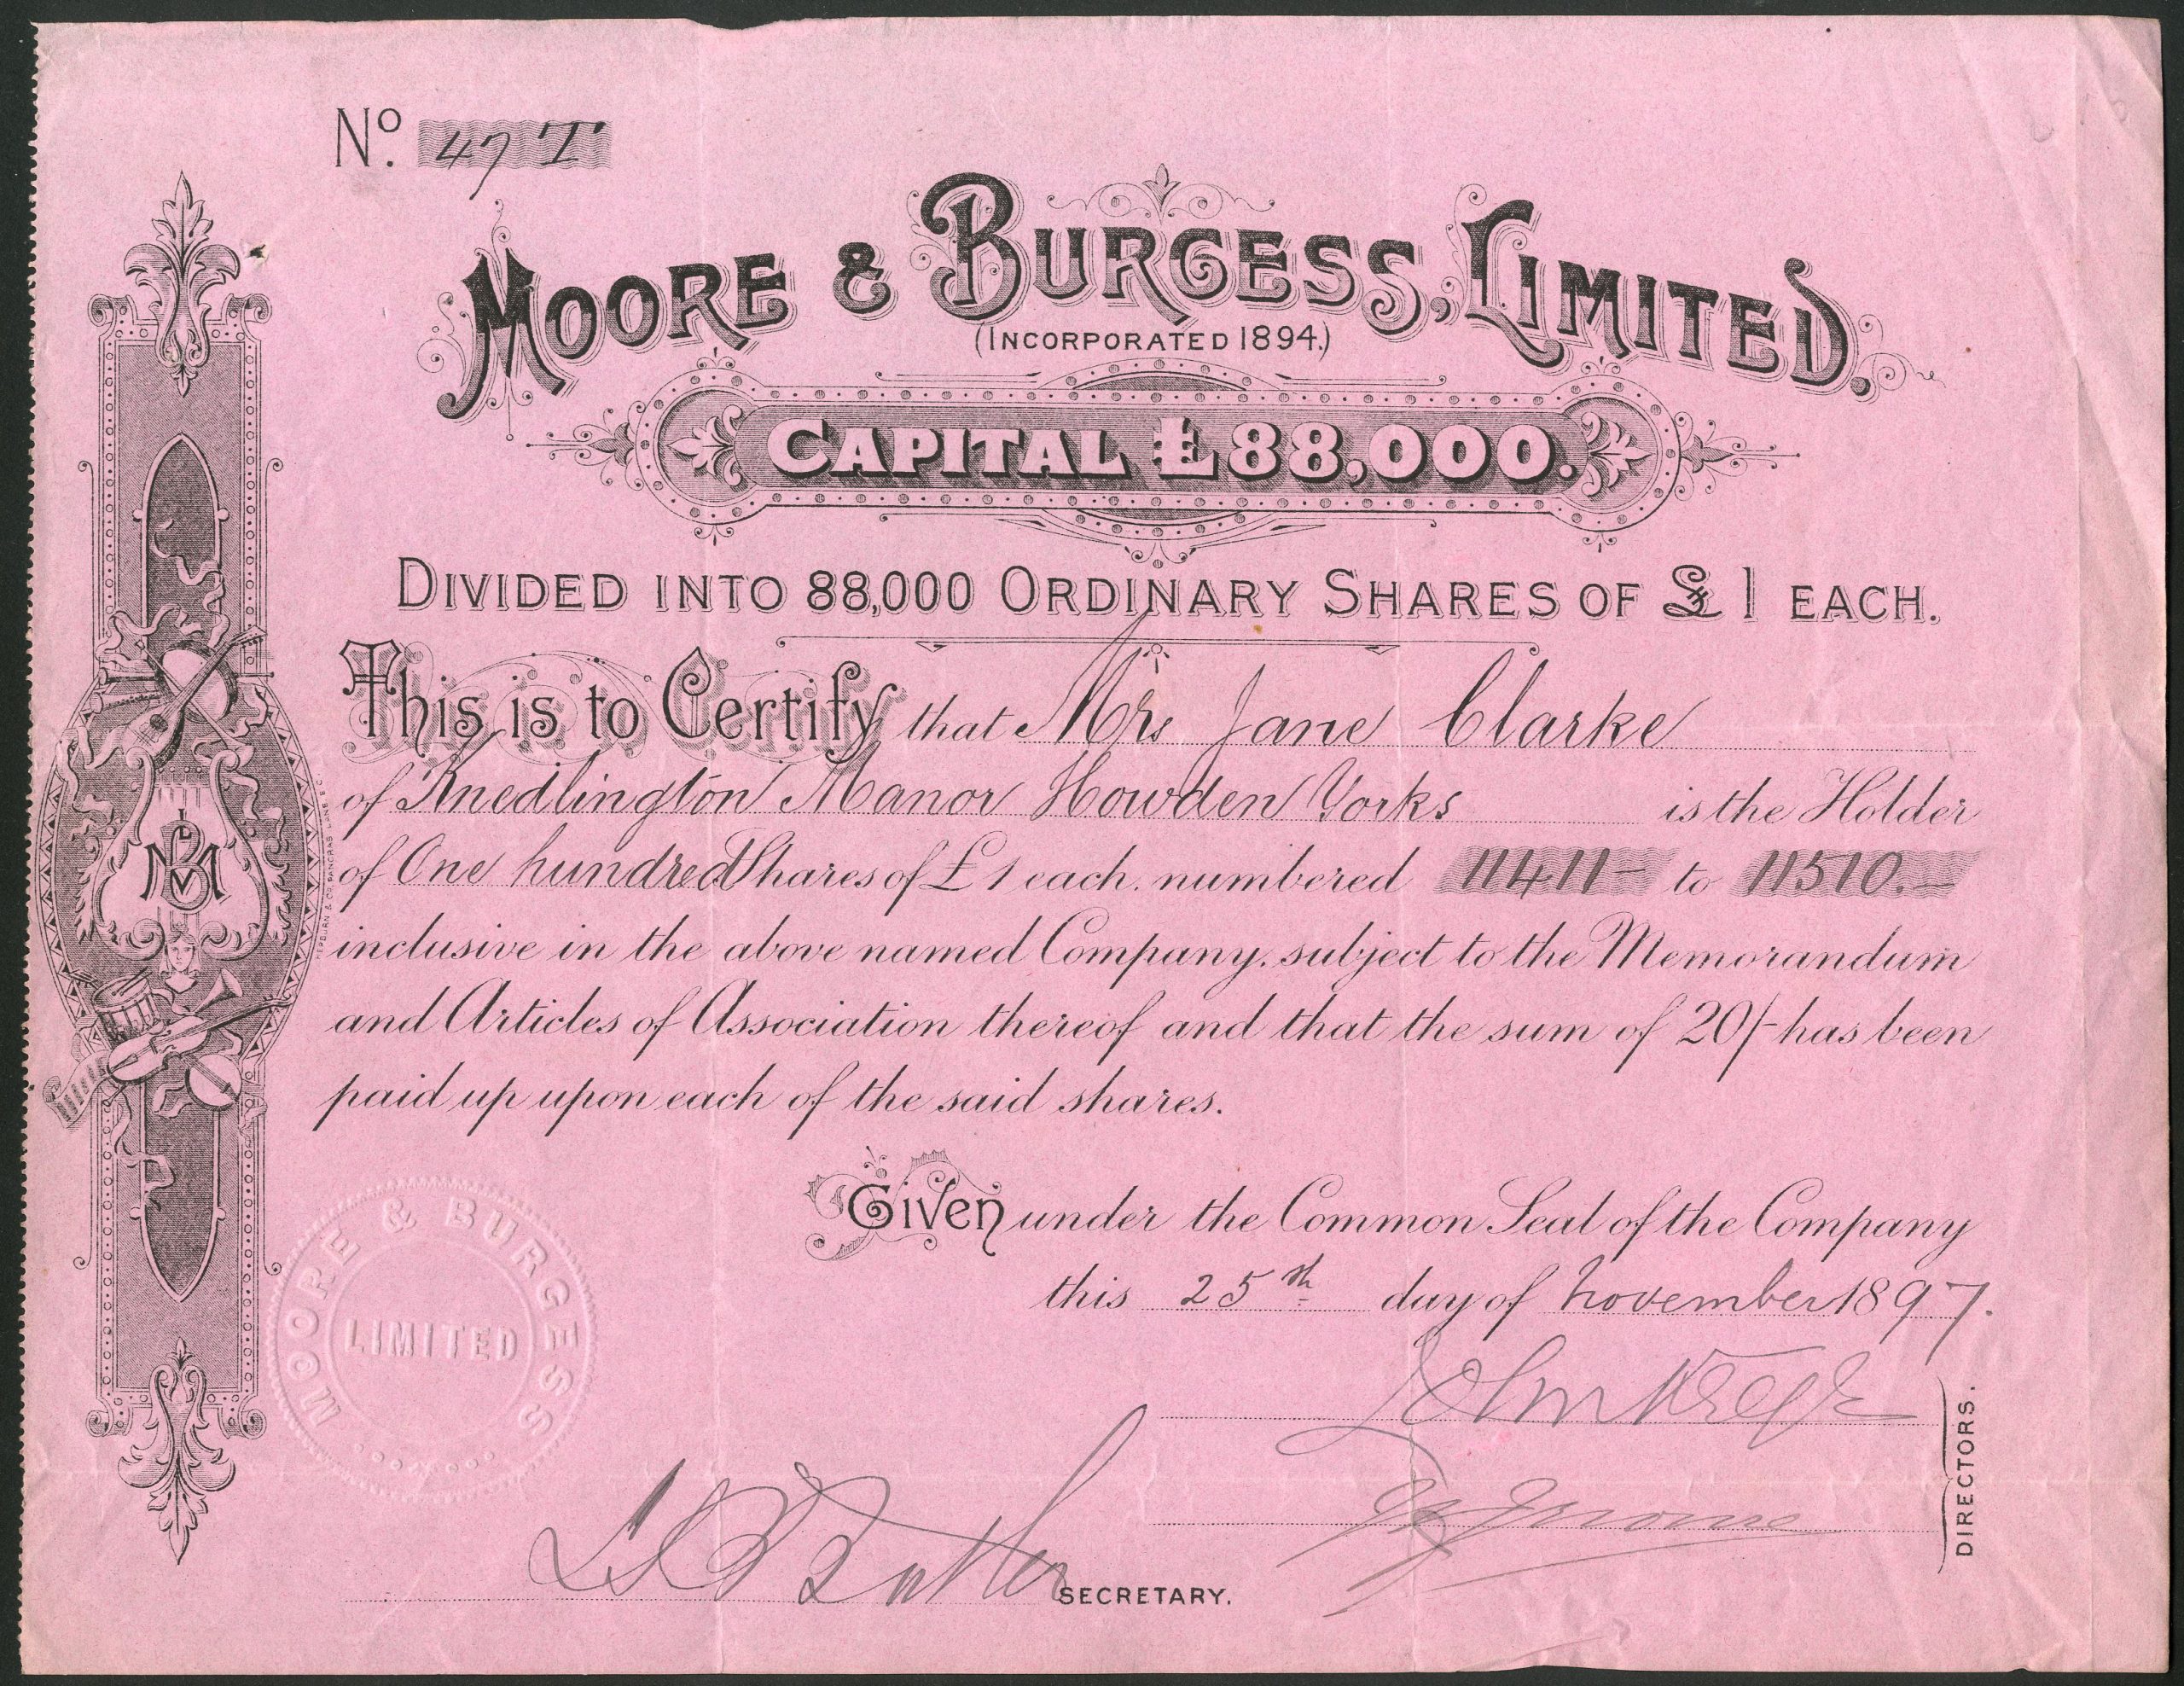 No. 47 T
MOORE & BURGESS, LIMITED.
(INCORPORATED 1894.)
CAPITAL £88,000.
DIVIDED INTO 88,000 ORDINARY SHARES OF £1 EACH.
This is to Certify that Mrs Jane Clarke
of Knedlington Manor Howden Yorks is the Holder
of One hundred Shares of £1 each. numbered 11411- to 11510.-
inclusive in the above named Company, subject to the Memorandum
and Articles of Association thereof and that the sum of 20/- has been
paid up upon each of the said shares.
Given under the Common Seal of the Company
this 25th day of November 1897.
DIRECTORS.
SECRETARY.
MOORE & BURGESS
LIMITED